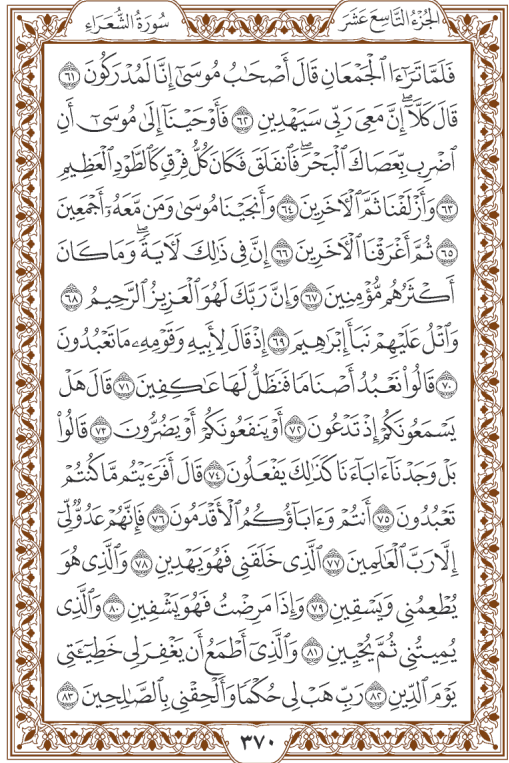 الجزء التاسع عشر
سورة الشعراء
فَلَمَّا تَرَٰٓءَا ٱلۡجَمۡعَانِ قَالَ أَصۡحَٰبُ مُوسَىٰٓ إِنَّا لَمُدۡرَكُونَ ٦١
قَالَ كَلَّآۖ إِنَّ مَعِيَ رَبِّي سَيَهۡدِينِ ٦٢ فَأَوۡحَيۡنَآ إِلَىٰ مُوسَىٰٓ أَنِ
ٱضۡرِب بِّعَصَاكَ ٱلۡبَحۡرَۖ فَٱنفَلَقَ فَكَانَ كُلُّ فِرۡقٖ كَٱلطَّوۡدِ ٱلۡعَظِيمِ
٦٣ وَأَزۡلَفۡنَا ثَمَّ ٱلۡأٓخَرِينَ ٦٤ وَأَنجَيۡنَا مُوسَىٰ وَمَن مَّعَهُۥٓ أَجۡمَعِينَ
٦٥ ثُمَّ أَغۡرَقۡنَا ٱلۡأٓخَرِينَ ٦٦ إِنَّ فِي ذَٰلِكَ لَأٓيَةٗۖ وَمَا كَانَ
أَكۡثَرُهُم مُّؤۡمِنِينَ ٦٧ وَإِنَّ رَبَّكَ لَهُوَ ٱلۡعَزِيزُ ٱلرَّحِيمُ ٦٨
وَٱتۡلُ عَلَيۡهِمۡ نَبَأَ إِبۡرَٰهِيمَ ٦٩ إِذۡ قَالَ لِأَبِيهِ وَقَوۡمِهِۦ مَا تَعۡبُدُونَ
٧٠ قَالُواْ نَعۡبُدُ أَصۡنَامٗا فَنَظَلُّ لَهَا عَٰكِفِينَ ٧١ قَالَ هَلۡ
يَسۡمَعُونَكُمۡ إِذۡ تَدۡعُونَ ٧٢ أَوۡ يَنفَعُونَكُمۡ أَوۡ يَضُرُّونَ ٧٣ قَالُواْ
بَلۡ وَجَدۡنَآ ءَابَآءَنَا كَذَٰلِكَ يَفۡعَلُونَ ٧٤ قَالَ أَفَرَءَيۡتُم مَّا كُنتُمۡ
تَعۡبُدُونَ ٧٥ أَنتُمۡ وَءَابَآؤُكُمُ ٱلۡأَقۡدَمُونَ ٧٦ فَإِنَّهُمۡ عَدُوّٞ لِّيٓ
إِلَّا رَبَّ ٱلۡعَٰلَمِينَ ٧٧ ٱلَّذِي خَلَقَنِي فَهُوَ يَهۡدِينِ ٧٨ وَٱلَّذِي هُوَ
يُطۡعِمُنِي وَيَسۡقِينِ ٧٩ وَإِذَا مَرِضۡتُ فَهُوَ يَشۡفِينِ ٨٠ وَٱلَّذِي
يُمِيتُنِي ثُمَّ يُحۡيِينِ ٨١ وَٱلَّذِيٓ أَطۡمَعُ أَن يَغۡفِرَ لِي خَطِيٓـَٔتِي
يَوۡمَ ٱلدِّينِ ٨٢ رَبِّ هَبۡ لِي حُكۡمٗا وَأَلۡحِقۡنِي بِٱلصَّٰلِحِينَ ٨٣
٣٧٠